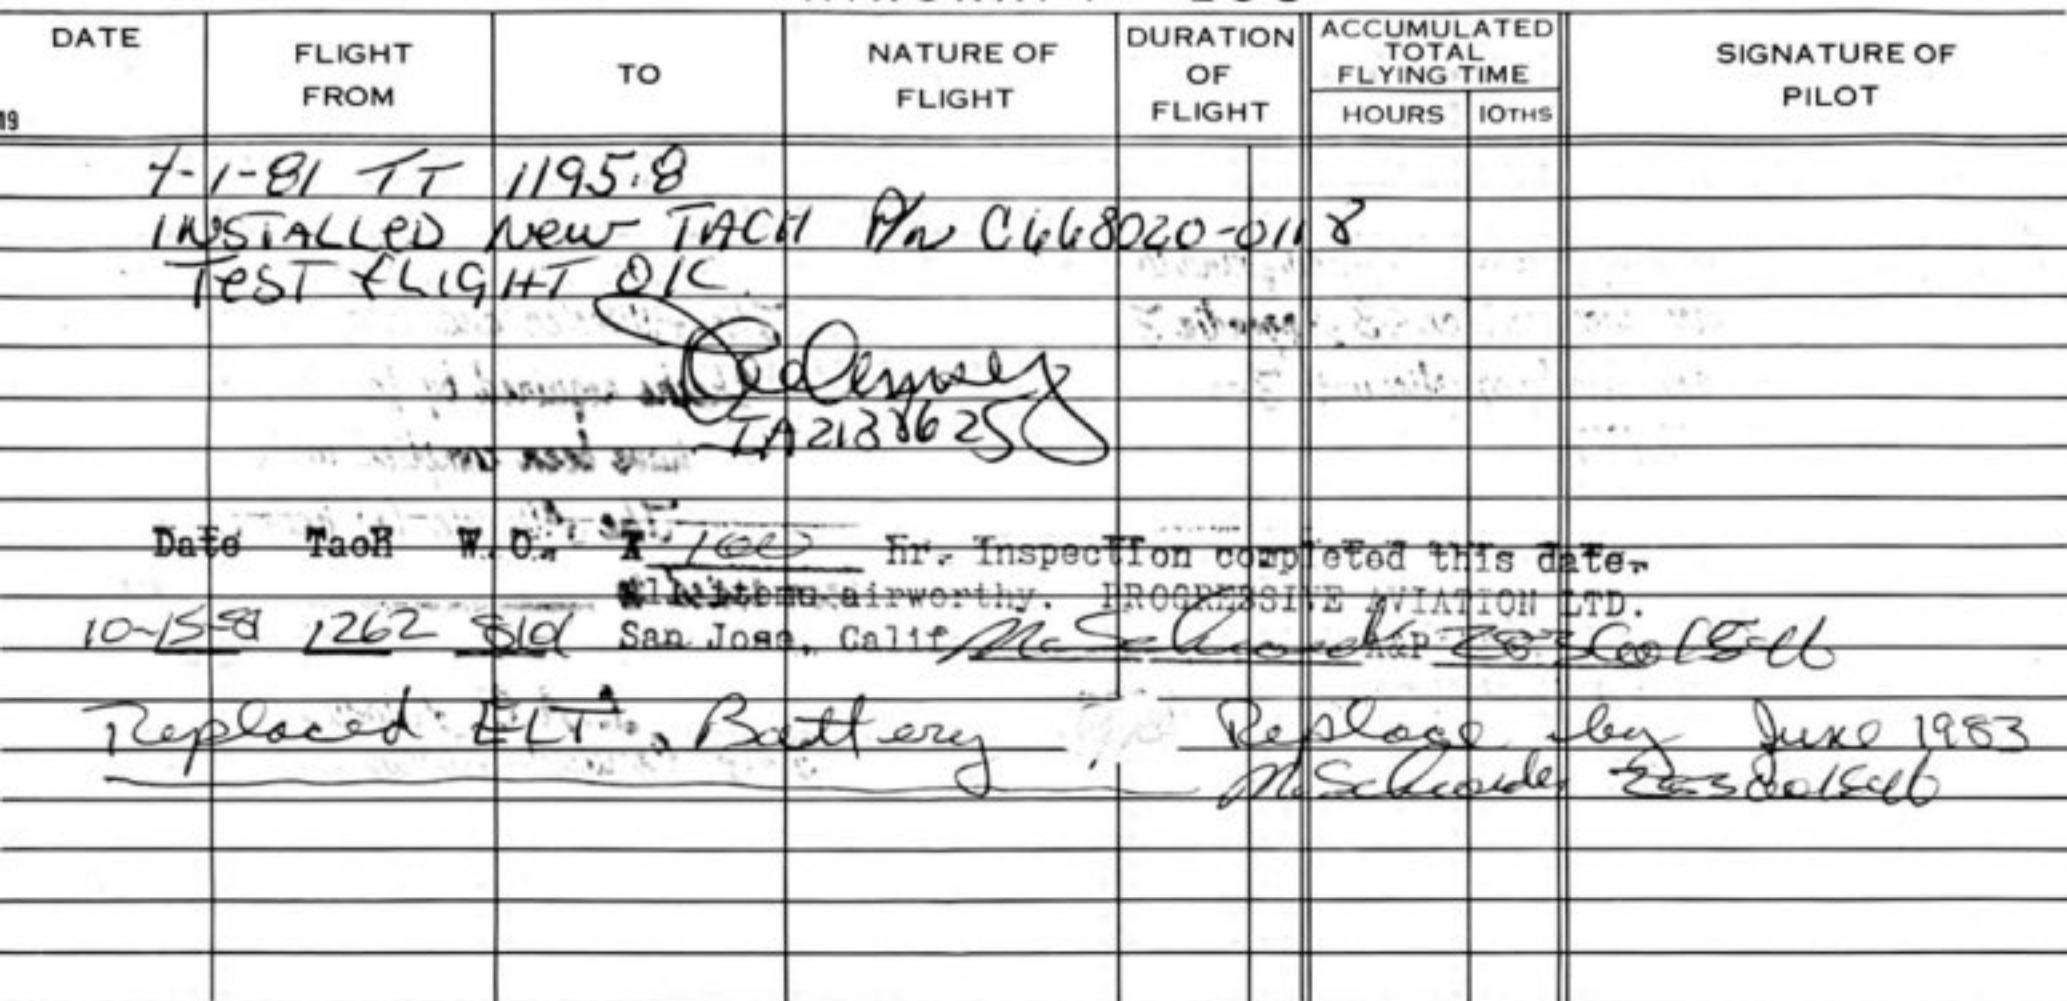 DATE
FLIGHT FROM
TO
NATURE OF FLIGHT
DURATION OF FLIGHT
ACCUMULATED TOTAL FLYING TIME
HOURS
10THS
SIGNATURE OF PILOT
19
-1-81 TT 1195.8
INSTALLED New TACH P/N C668020-0118
TEST fLIGHT OK
IA
Date TacH W.O. A 100 Hr. Inspection completed this date.
airworthy. PROGRESSIVE AVIATION LTD.
10-15-81 1262 San Jose, Calif A&P
Replaced ELT Battery Replace by June 1983